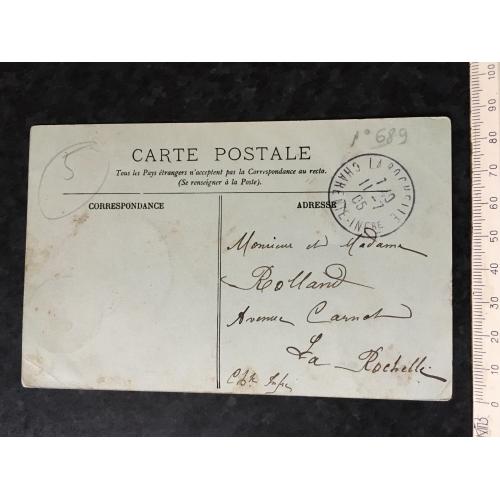 1° 689
5
CARTE POSTALE
Tous les Pays étrangers n'acceptent pas la Correspondance au recto.
(Se renseigner à la Poste).
CORRESPONDANCE
ADRESSE
LA ROCHELLE
CHARENTE-INFRE
05
Monsieur et Madame
Rolland
Avenue Carnot
La Rochelle
Chte Infre
0 10 20 30 40 50 60 70 80 90 100